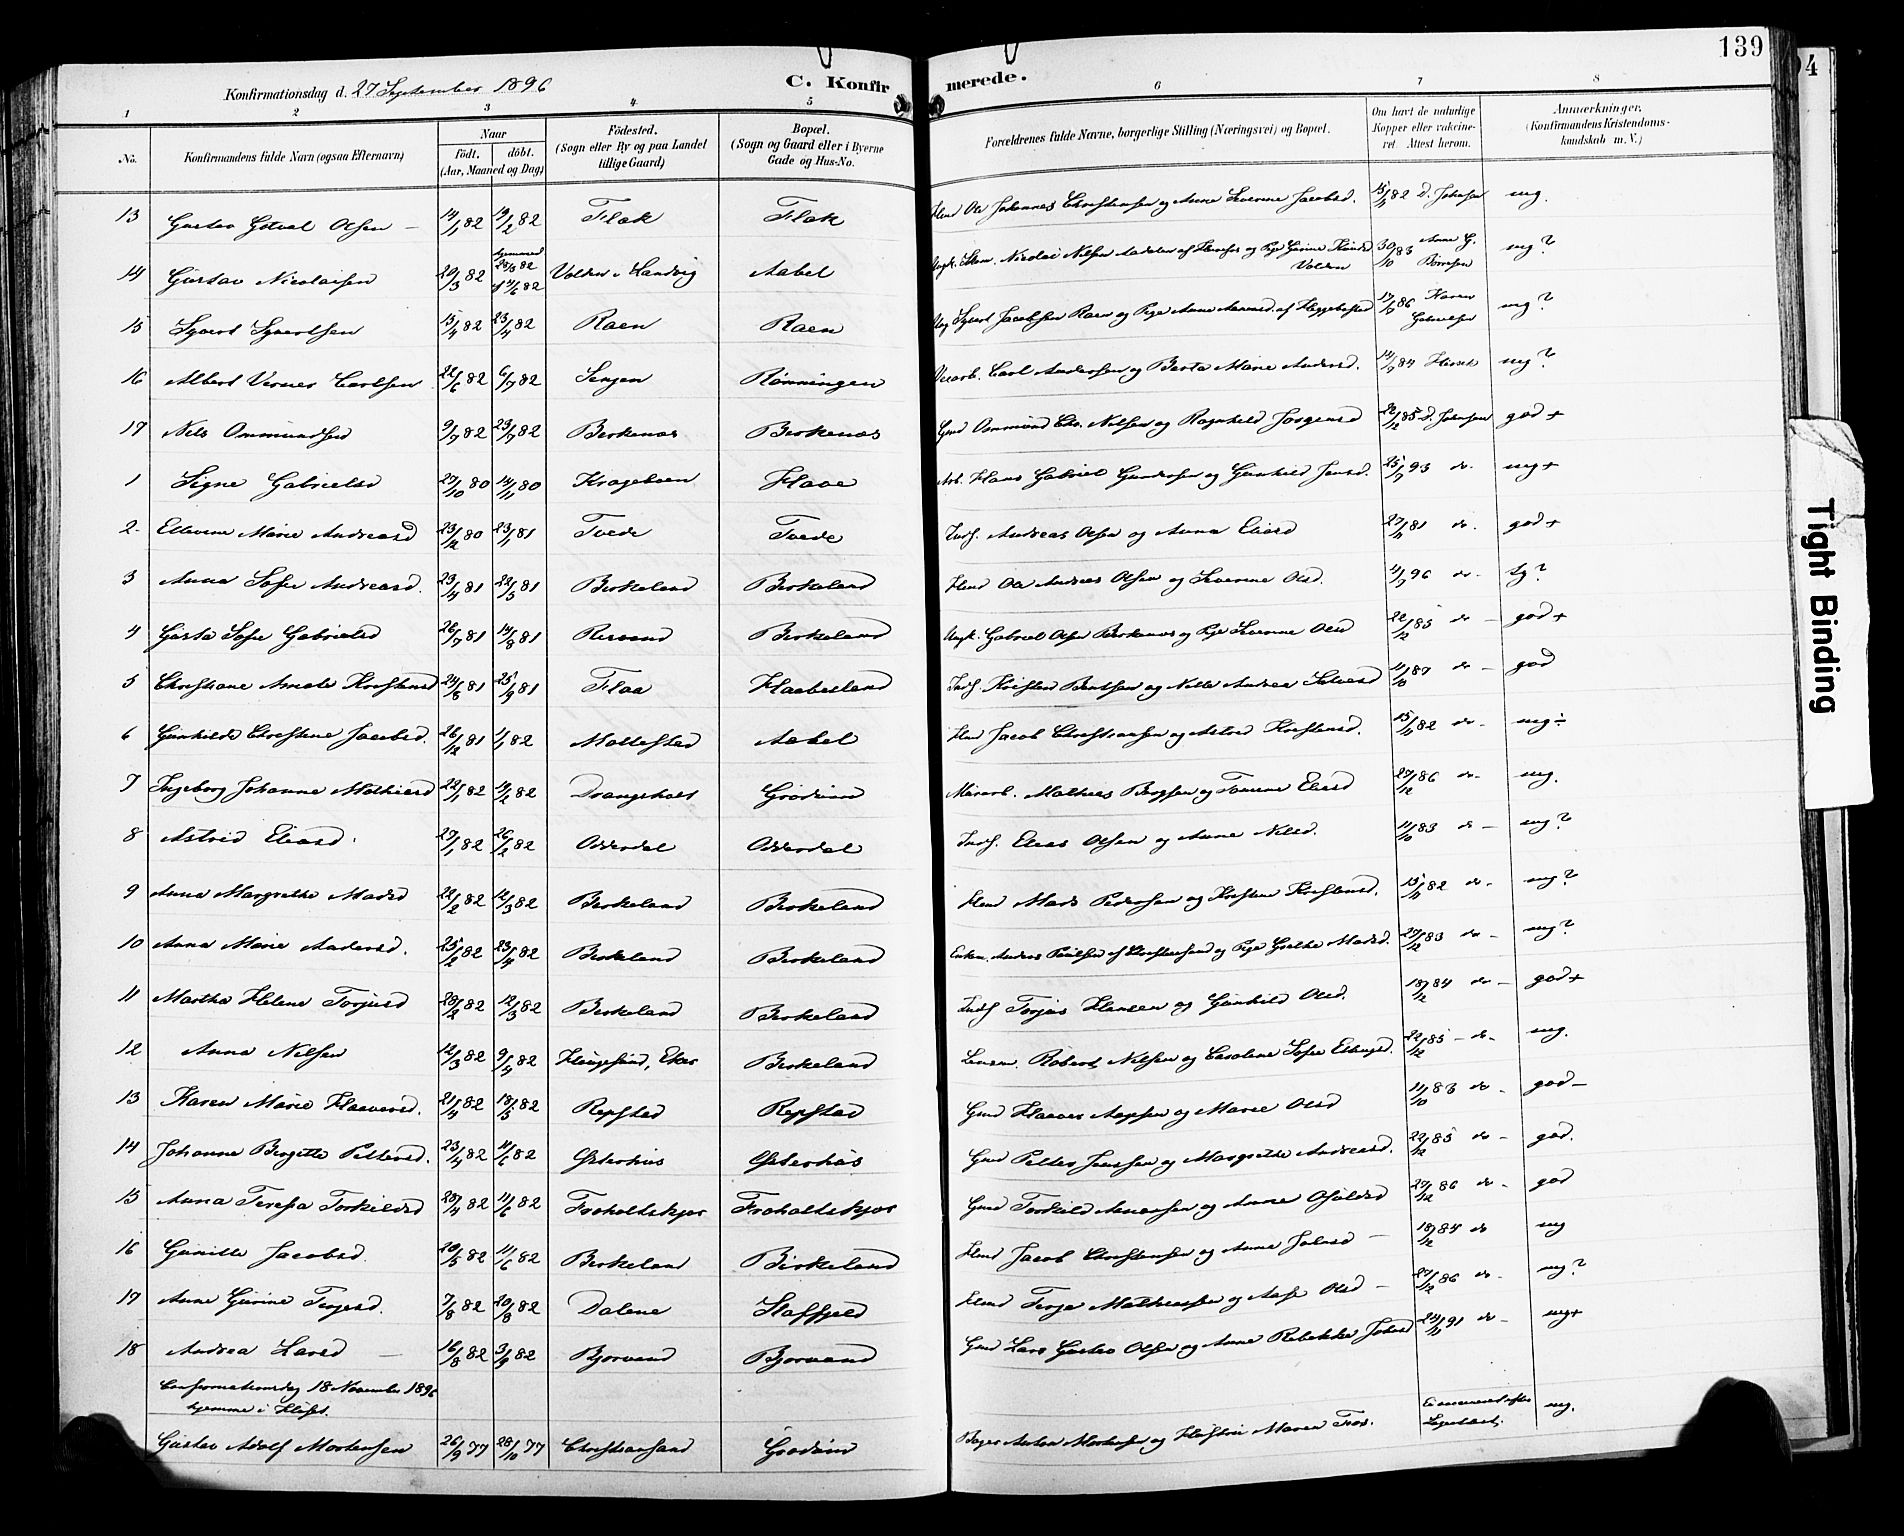 139
4
Tight Binding
Konfirmationsdag d. 27 September 1896
C. Konfirmerede.
1 2 3 4 5 6 7 8
No. Konfirmandens fulde Navn (ogsaa Efternavn) Naar født. døbt. (Aar, Maaned og Dag) Fødested. (Sogn eller By og paa Landet tillige Gaard) Bopæl. (Sogn og Gaard eller i Byerne Gade og Hus-No. Forældrenes fulde Navne, borgerlige Stilling (Næringsvei) og Bopæl. Om havt de naturlige Kopper eller vakcineret. Attest herom. Anmærkninger. (Konfirmandens Kristendomskundskab m. V.)
13 Gustav Gotval Olsen – 14/1 82 19/2 82 Flak Flak Ole Johannes Christensen og Anne Severine Jacobsd. 15/11 82 D. Johnsen mg.
14 Gustav Nicolaisen 20/3 82 hjemmed 28/3 82 11/6 82 Volden i Landvig Aabel Ungk. Nicolai Nilsen Aadalen af Herefos og Pige Gurine Volden 30/10 83 Anne G. Børresen mg?
15 Syvert Syvertsen 15/4 82 23/4 82 Raen Raen Ung Syvert Jacobsen Raen og Pige Anne Aanensd. af Heggebostad 17/9 86 Karen Gabrielsen mg?
16 Albert Verner Carlsen 22/6 82 6/7 82 Senjen Rønningen Veiarb. Carl Andersen og Berta Marie Andersd. 14/7 84 mg?
17 Nils Ommundsen 9/7 82 23/7 82 Berkenæs Birkenæs Gmd Ommund Chr. Nilsen og Ragnhild Jørgensd 22/12 85 D. Johnsen god +
1 Signe Gabrielsd 27/10 80 14/11 80 Krageboen Flaae Arb. Hans Gabriel Gundersen og Gunhild Jensd. 25/7 93 do. mg+
2 Ellevine Marie Andreasd 23/12 80 23/1 81 Tvede Tvede Inds. Andreas Olsen og Anna Eliasd 27/11 81 do. god +
3 Anna Sofie Andreasd. 23/4 81 22/5 81 Birkeland Birkeland Ole Andreas Olsen og Severine Olsd. 11/7 96 do – tg?
4 Gusta Sofie Gabrielsd 26/7 81 14/8 81 Birkeland Ungk. Gabriel Olsen Berkenæs og Pige Severine Olsd 22/12 85 do – god +
5 Christiane Amalie Kristensd 24/8 81 25/9 81 Flaa Haabesland Inds. Kristen Bentsen og Nille Andrea Salvesd 11/10 87 do – god
6 Gunhilde Christine Jacobsd. 26/12 81 1/1 82 Mollestad Aabel Jacob Christiansen og Astrid Kristensd. 15/11 82 do – mg÷
7 Ingeborg Johanne Mathiasd 22/1 82 19/2 82 Drangsholt Grødum Mathias Bergsen og Tomine Eliasd 27/12 86 do – mg.
8 Astrid Eliasd. 27/1 82 26/2 82 Oddersdal Oddersdal Inds. Elias Olsen og Anne Nilsd. 11/10 83 do – mg?
9 Anna Margrethe Madsd 22/2 82 12/3 82 Berkeland Birkeland Mads Pedersen og Kristine Kristensd. 15/11 82 do – mg?
10 Anna Marie Andersd. 25/2 82 23/4 82 Berkeland Birkeland Enkem. Anders Paulsen af Christiansand og Pige Grethe Madsd. 27/12 83 do – mg?
11 Martha Helene Torjusd 28/2 82 12/3 82 Berkeland Birkeland Inds Torjus Hansen og Gunhild Olsd. 18/12 84 do – god +
12 Anna Nilsen 12/3 82 9/4 82 Klungsund, Eker Birkeland Lensm. Robert Nilsen og Caroline Sofie Ellingsd. 22/12 85 – do – mg.
13 Karen Marie Haaversd. 21/4 82 18/5 82 Repstad Repstad Gmd Haaver Aapsen og Marie Olsd 11/10 83 do – god –
14 Johanne Birgitte Pettersd. 23/4 82 11/6 82 Østerhus Østerhus Gmd Petter Jensen og Margrethe Andreasd. 22/12 85 do – god.
15 Anna Teresia Torkildsd 28/4 82 11/6 82 Froholtskjær Froholtskjær Gmd Torkild Aanensen og Anne Osuldsd 27/12 86 do – god
16 Gunille Jacobsd. 20/5 82 11/6 82 Berkeland Birkeland Jacob Christensen og Anne Johnsd – 18/12 84 do mg
17 Anne Gurine Terjesd. 7/8 82 20/8 82 Dalene Stoffjeld Terje Mathiassen og Aase Olsd – 27/12 86 do – mg?
18 Andrea Larsd – 16/8 82 3/9 82 Bjorvand Bjorvand Gmd Lars Gustav Olsen og Anne Rebekka Johnsd 24/11 91 do – mg+
Confirmationsdag 18 November 1896
hjemme i Huset.
Gustav Adolf Mortensen 26/9 77 28/10 77 Christiansand Grødum Bager Anton Mortensen og Hustru Maren mg.